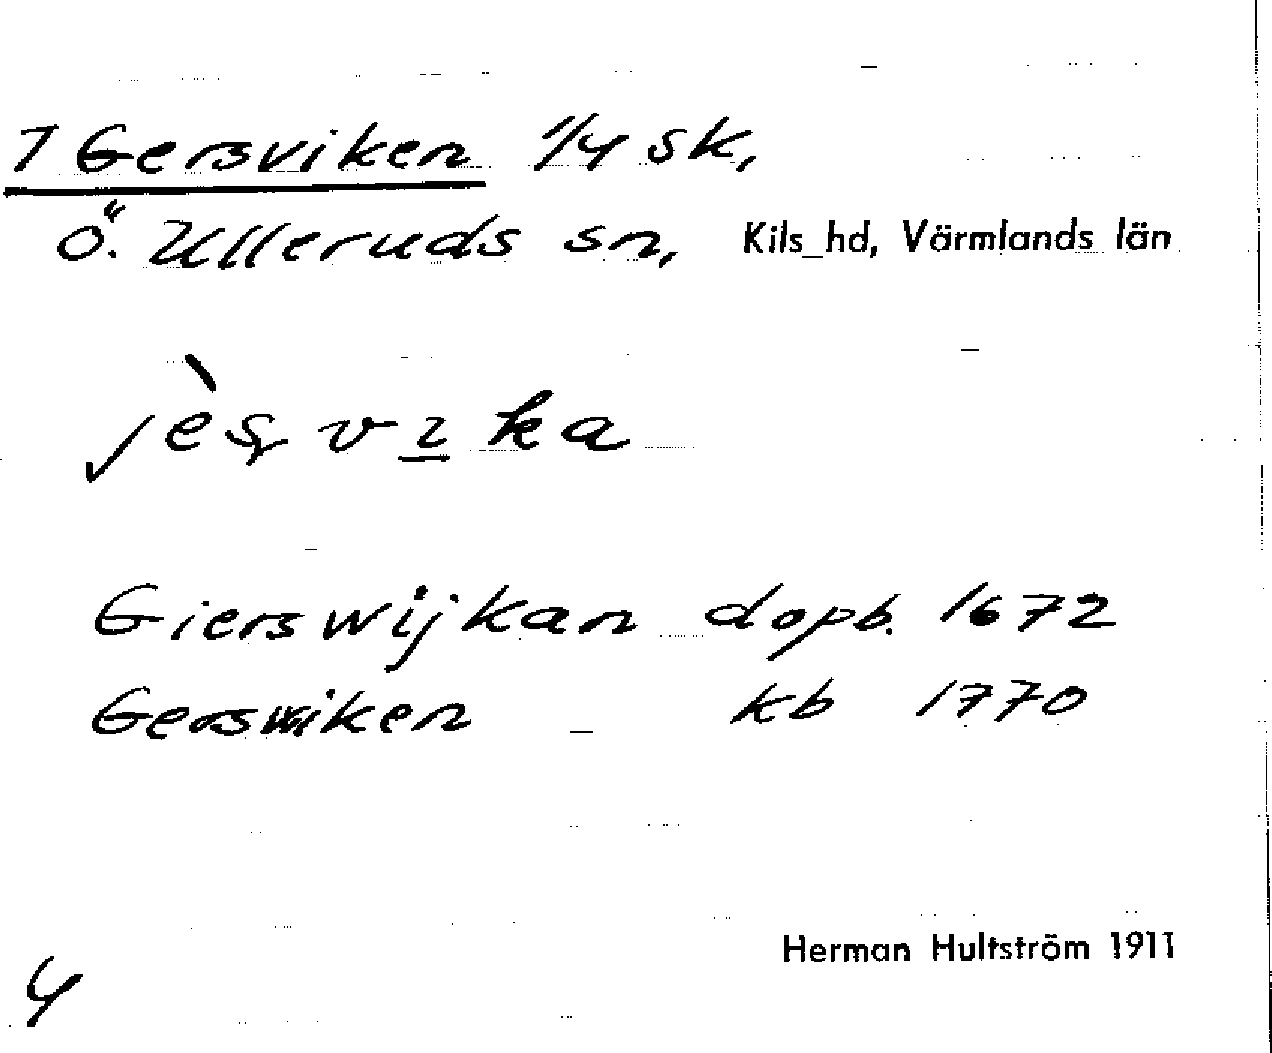 1 Gersviken 1/4 sk,
Ö. Ulleruds sn, Kils hd, Värmlands län
jèʂvɪ̱ka
Gierswijkan dopb. 1672
Gerswiken kb 1770
Herman Hultström 1911
4